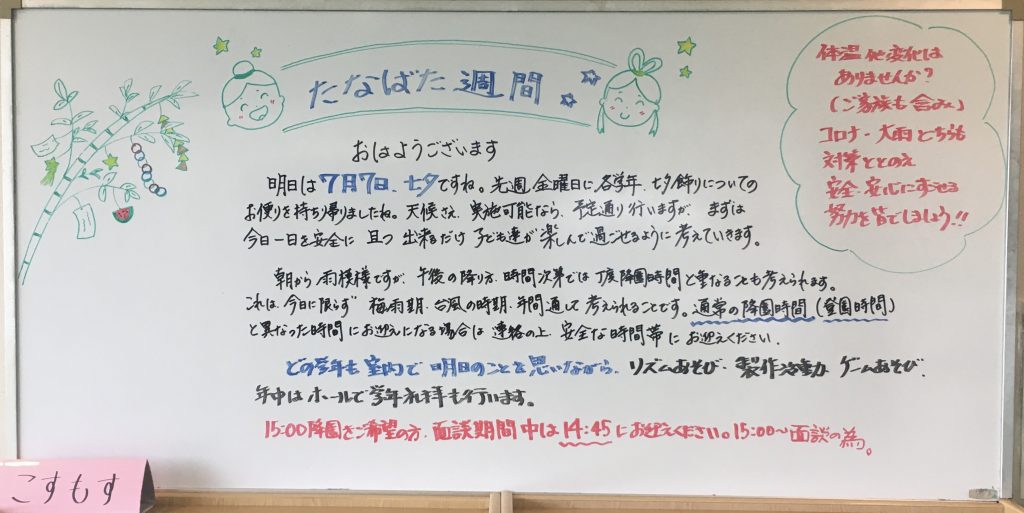 たなばた週間
おはようございます
明日は7月7日、七夕ですね。先週金曜日に、各学年、七夕飾りについての
お便りを持ち帰りましたね。天候さえ、実施可能なら、予定通り行いますが、まずは
今日一日を安全に 且つ 出来るだけ 子ども達が楽しんで過ごせるように考えていきます。
朝から雨模様ですが、午後の降り方、時間次第では 丁度降園時間と重なることも考えられます。
これは、今日に限らず 梅雨期、台風の時期、年間通して考えられることです。通常の降園時間(登園時間)
と異なった時間にお迎えになる場合は 連絡の上、安全な時間帯にお迎えください。
どの学年も室内で 明日のことを思いながら、リズムあそび・製作活動 ゲームあそび、
年中はホールで学年礼拝も行います。
15:00降園をご希望の方、面談期間中は14:45にお迎えください。15:00〜面談の為。
体温 他変化は
ありませんか?
(ご家族も含み)
コロナ・大雨どちらも
対策ととのえ
安全・安心にすごせる
努力を皆でしましょう!!
こすもす